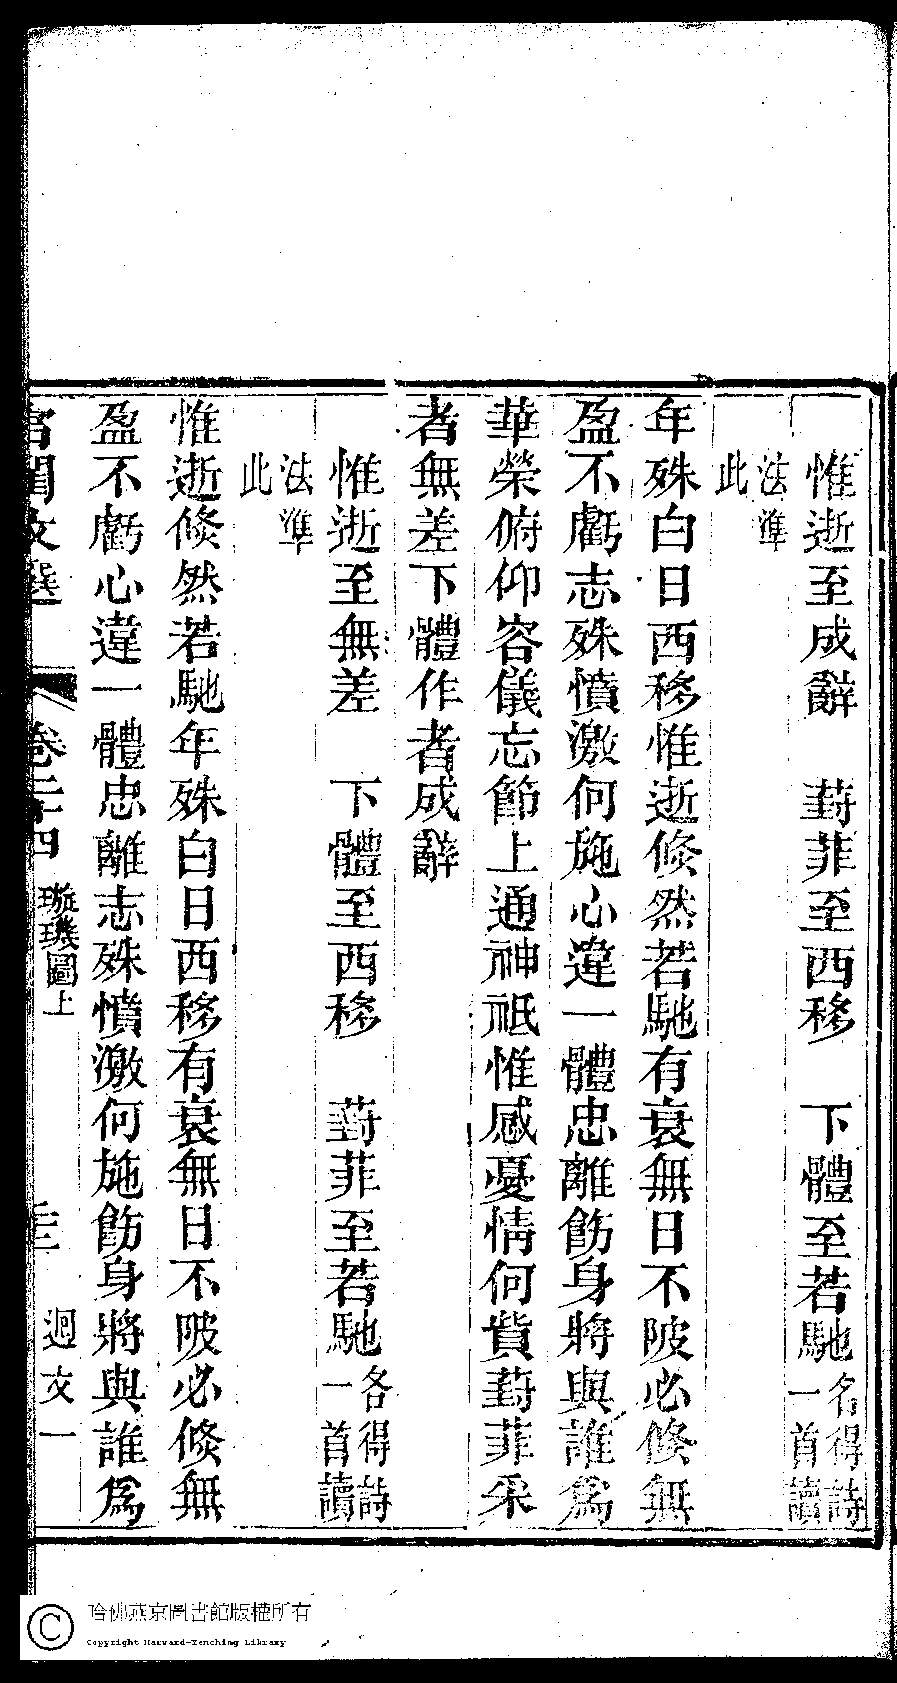 惟逝至成辭　葑菲至西移　下體至若馳名得詩一首讀
法準此
年殊白日西移惟逝倏然若馳有衰無日不陂必倏無
盈不虧志殊憤激何施心違一體忠離飭身將與誰為
華榮俯仰容儀忘節上通神祇惟感憂情何貲葑菲采
者無差下體作者成辭
惟逝至無差　下體至西移　葑菲至若馳各得詩一首讀
法準此
惟逝倏然若馳年殊白日西移有衰無日不陂必倏無
盈不虧心違一體忠離志殊憤激何施飭身將與誰為
宮閨文選　卷二十四　璇璣圖上　迴文一
哈佛燕京圖書館版權所有
Copyright Harvard-Yenching Library